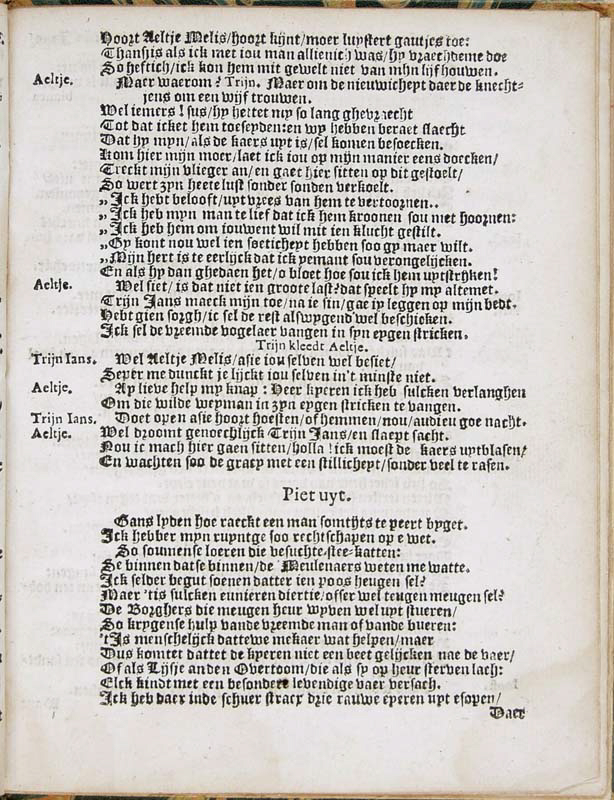 Hoort Aeltje Melis/hoort kijnt/moer luystert gautjes toe:
Thansjis als ick met jou man allienich was/hy vraechdeme doe
So heftich/ick kon hem met gewelt niet van mijn lijf houwen.
Aeltje. Maer waerom? Trijn. Maer om de nieuwicheyt daer de knecht-
jens om een wijf trouwen.
Wel iemers! sus/hy hettet my so lang ghevraecht
Tot dat icket hem toeseyden:en wy hebben beraet slaecht
Dat hy myn/als de kaers uyt is/sel komen besoecken.
Kom hier mijn moer/laet ick jou op mijn manier eens doecken/
Treckt mijn vlieger an/en gaet hier sitten op dit gestoelt/
So wert zyn heete lust sonder sonden verkoelt.
„ Ick hebt belooft/uyt vrees van hem te vertoornen..
„ Ick heb myn man te lief dat ick hem kroonen sou met hoornen:
„ Ick heb hem om jouwent wil mit ien klucht gestilt.
„ Gy kont nou wel ien soeticheyt hebben soo gy maer wilt.
„ Mijn hert is te eerlijck dat ick yemant sou verongelijcken.
En als hy dan ghedaen het/o bloet hoe sou ick hem uytstrijken!
Aeltje. Wel siet/ is dat niet ien groote last? dat speelt hy my altemet.
Trijn Jans maeck mijn toe/na ie sin/gae jy leggen op mijn bedt.
Hebt gien sorgh/ic sel de rest alswygend wel beschicken.
Ick sel de vreemde vogelaer vangen in syn eygen stricken.
Trijn kleedt Aeltje.
Trijn Ians. Wel Aeltje Melis/asie jou selven wel besiet/
Seper me dunckt je lijckt jou selven in't minste niet.
Aeltje. Ay lieve help my knap: Heer kyeren ick heb sulcken verlanghen
Om die wilde weyman in zyn eygen stricken te vangen.
Trijn Ians. Doet open asie hoort hoesten/of hemmen/nou/audieu goe nacht.
Aeltje. Wel droomt genoechlijck Trijn Jans/en slaept sacht.
Nou ic mach hier gaen sitten/holla! ick moest de kaers uytblasen/
En wachten soo de gracy met een stillicheyt/sonder veel te rasen.
Piet uyt.
Gans lyden hoe raeckt een man somtijts te peert byget.
Ick hebber mijn ruyntge soo rechtschapen op e wet.
So soumense loeren die besuchte-stee-katten:
Se binnen datse binnen/de Meulenaers weten me watte.
Ick selder begut soenen datter ien poos heugen sel?
Maer 'tis sulcken eunieren diertie/offer wel teugen meugen sel?
De Borghers die meugen heur wyven wel uyt stueren/
So krygense hulp vande vreemde man of vande bueren:
'tIs menschelijck dattewe mekaer wat helpen/maer
Dus komtet dattet de kyeren niet een beet gelijcken nae de vaer/
Of als Lijsje an den Overtoom/die als sy op heur sterven lach:
Elck kindt met een besondere levendige vaer versach.
Ick heb daer inde schuer stracx drie rauwe eyeren uyt esopen/
Daer